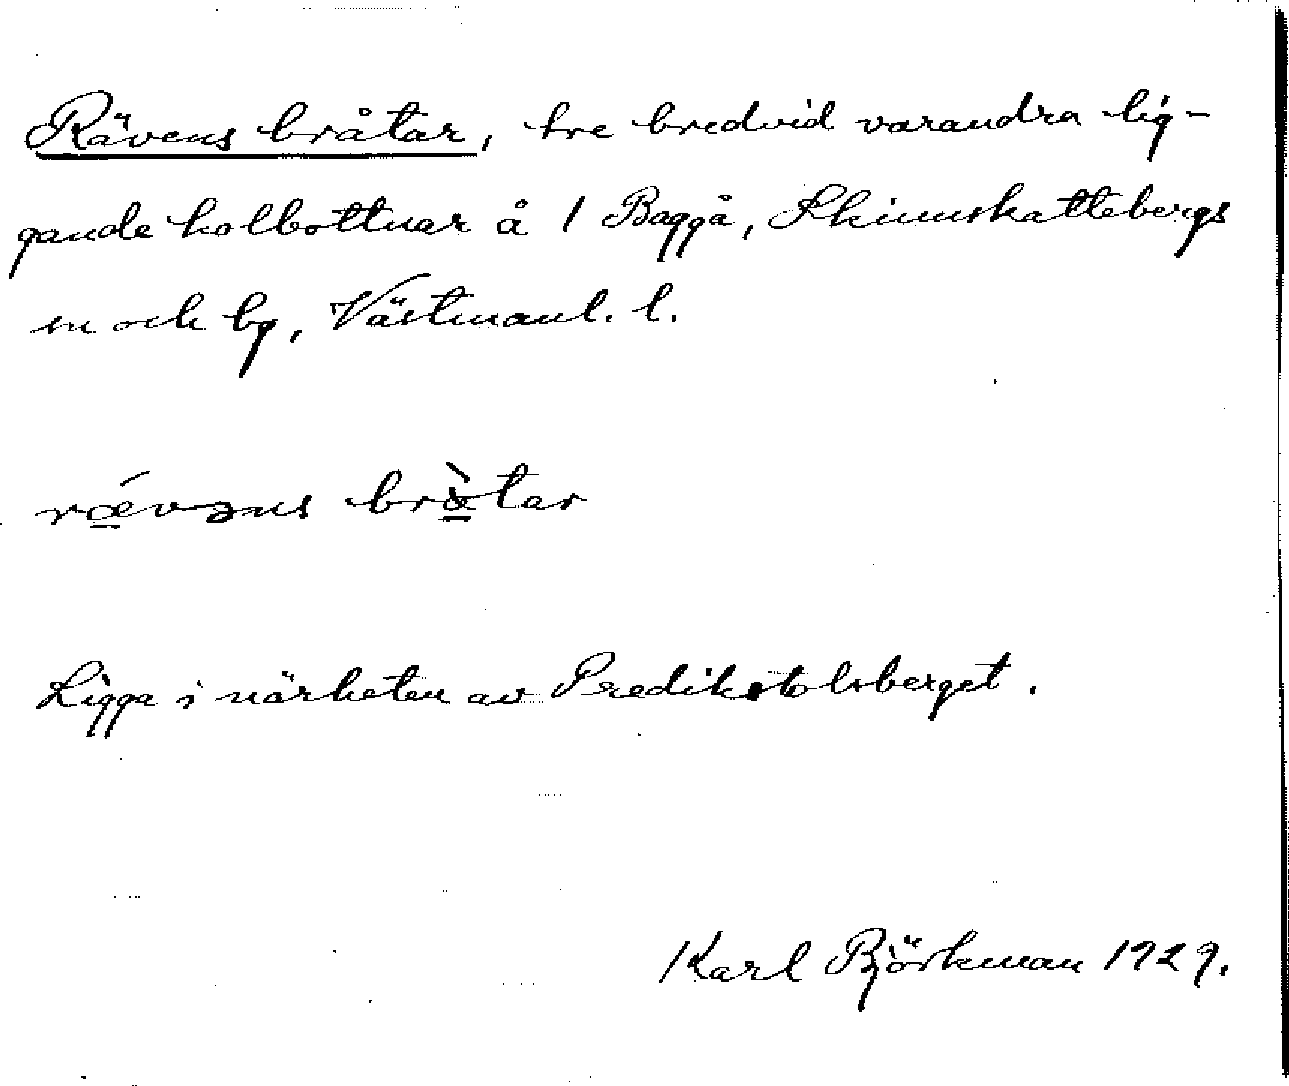 Rävens bråtar, tre bredvid varandra lig-
gande kolbottnar å 1 Baggå, Skinnskattebergs
sn och bg, Västmanl. l.
rǽvəns brɑ̀tar
Ligga i närheten av Predikstolsberget.
Karl Björkman 1929.